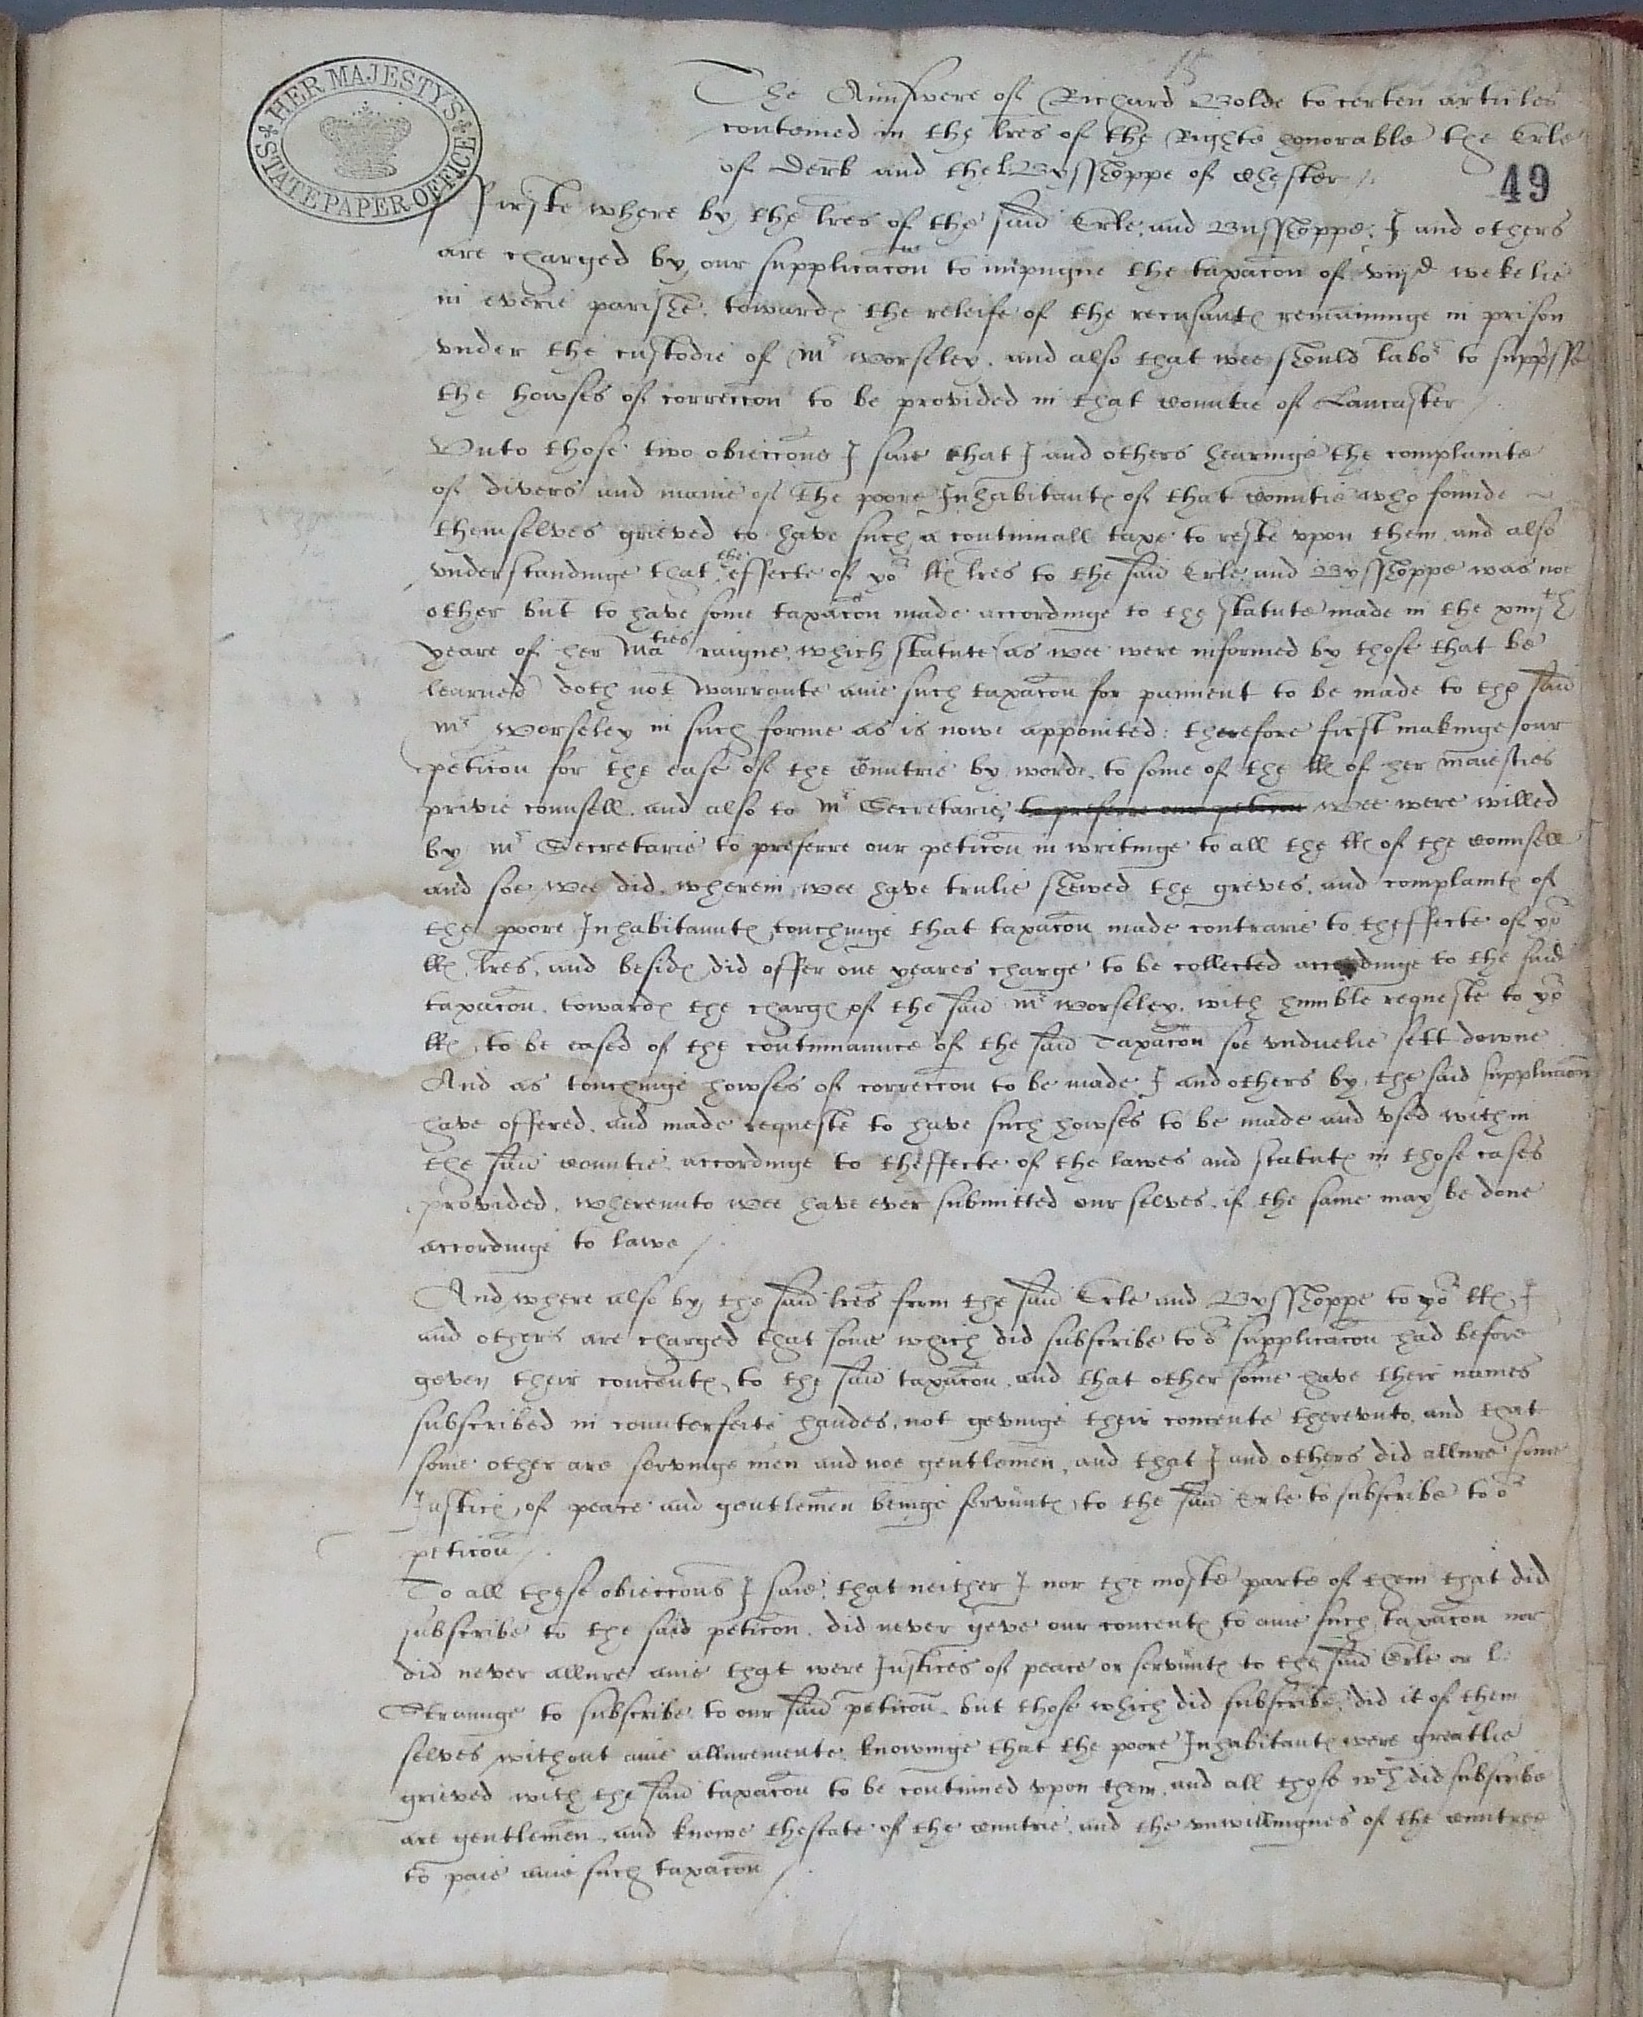 15
HER MAJESTY'S STATE PAPER OFFICE
The Aunswere of Richard Bolde to certen articles
conteined in the lres of the Righte honorable the Erle
of Derb and the L Bysshoppe of Chester /.
49
Firste where by the lres of the said Erle, and Bysshoppe, I and others
are charged by our supplicacon to impugne the taxacon of viijd wekelie
in everie parishe, towardes the releife of the recusantes remaininge in prison
vnder the custodie of Mr Worseley, and also that wee should labor to suppresse
the howses of correccon to be provided in that Countie of Lancaster /.
Vnto those two obieccons I saie that I and others hearinge the complainte
of divers and manie of the poore Inhabitantes of that Countie who founde
themselves grieved to have such a continuall taxe to reste vpon them, and also
vnderstandinge that the effecte of yor lls lres to the said Erle, and Bysshoppe was noe
other but to have some taxacon made accordinge to the statute made in the xiiijth
yeare of her Maties raigne, which statute (as wee were informed by those that be
learned) doth not warrante anie such taxacon for paiment to be made to the said
Mr Worseley in such forme as is nowe appointed: therefore first makinge our
peticon for the ease of the Cuntrie by worde, to some of the lls of her maiesties
privie counsell, and also to Mr Secretarie, to preferre our peticon wee were willed
by Mr Secretarie to preferre our peticon in writinge to all the lls of the Counsell
and soe wee did, wherein wee have trulie shewed the greves, and complaintes of
the poore Inhabitauntes touchinge that taxacon made contrarie to theffecte of yor
lls lres, and besides did offer one yeares charge to be collected accordinge to the said
taxacon, towardes the charges of the said Mr Worseley, with humble requeste to yor
lls, to be eased of the continuaunce of the said Taxacon soe vnduelie sett downe
And as touchinge howses of correccon to be made I and others by the said supplicacon
have offered, and made requeste to have such howses to be made and vsed within
the said Countie, accordinge to theffecte of the lawes and statutes in those cases
provided, wherevnto wee have ever submitted our selves, if the same may be done
accordinge to lawe /.
And where also by the said lres from the said Erle and Bysshoppe to yor lls, I
and others are charged that some which did subscribe to or supplicacon had before
geven their concentes to the said taxacon, and that other some have their names
subscribed in counterfeite handes, not gevinge their concente therevnto, and that
some other are servinge men and noe gentlemen, and that I and others did allure some
Justices of peace and gentlemen beinge servuntes to the said Erle to subscribe to or
peticon /.
To all those obieccons I saie, that neither I nor the moste parte of them that did
subscribe to the said peticon, did never geve our concentes to anie such taxacon nor
did never allure anie that were Justices of peace or servuntes to the said Erle or L:
Straunge to subscribe to our said peticon, but those which did subscribe, did it of them
selves without anie alluremente, knowinge that the poore Inhabitantes were greatlie
grieved with the said taxacon to be continued vpon them, and all those wch did subscribe
are gentlemen, and knowe thestate of the cuntrie, and the vnwillingnes of the cuntree
to paie anie such taxacon /.